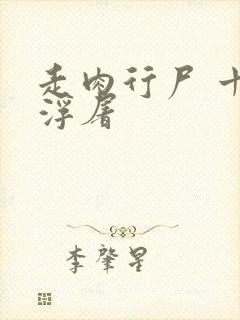 走肉行尸 十
浮屠
李肇星